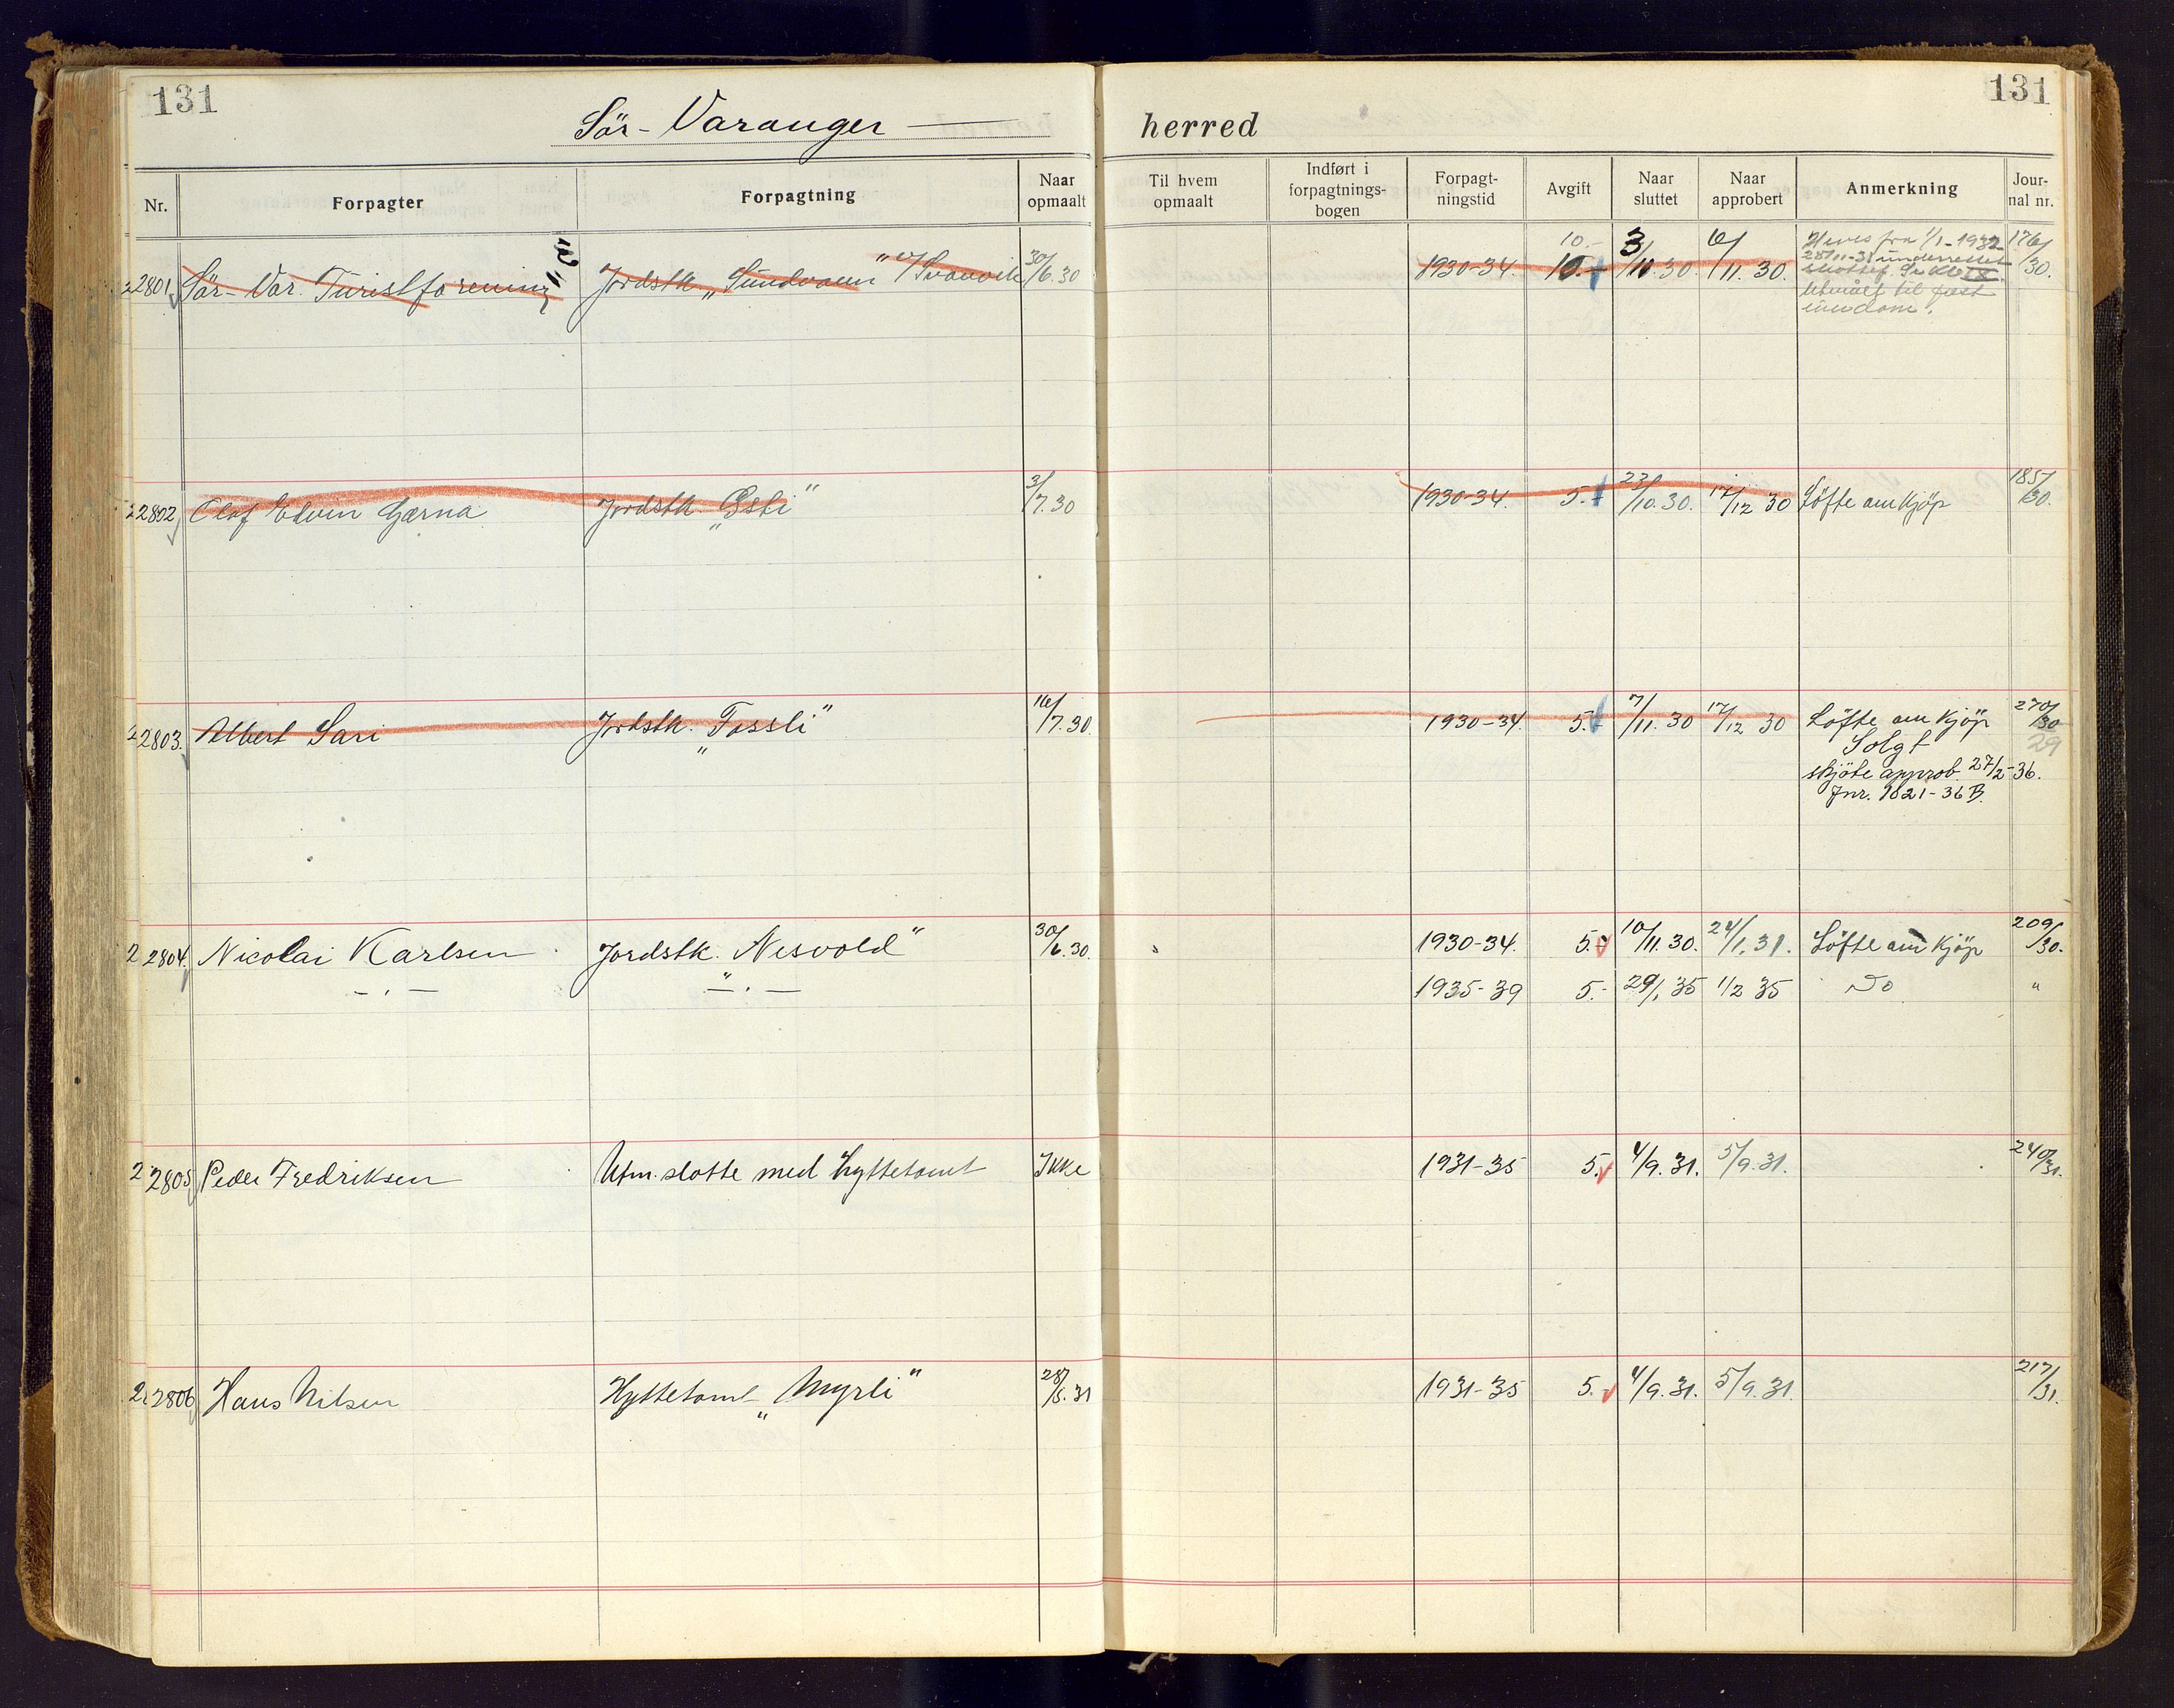 131
131
Sör-Varanger — herred
Nr. Forpagter Forpagtning Naar opmaalt Til hvem opmaalt Indført i forpagtnings-bogen Forpagt-ningstid Avgift Naar sluttet Naar approbert Anmerkning Jour-nal nr.
10.-
2801 Sör-Var. Turistforening Jordstk. „Sundvann" v/ Svanvik 30/6.30 1930-34. 10.- 3/11.30. 6/11.30. Heves fra 1/1-1932 176/30.
28/11-31 underrettet
Utmålt til fast
eiendom.
2802 Olaf Edvin Gærna Jordstk. „Osti" 3/7.30 1930-34. 5.- 23/10.30. 17/12 30 Löfte om kjöp 185/30.
2803. Albert Sari Jordstk. „Fossli" 16/7.30. 1930-34. 5.- 7/11.30 17/12 30 Löfte om kjöp 270/30
Solgt 29
skjöte approb. 27/2-36.
Jnr. 1821-36 B.
2804. Nicolai Karlsen Jordstk. Nesvold" 30/6.30. 1930-34. 5.- 10/11.30. 24/1.31. Löfte om kjöp 209/30.
—"— —"— 1935-39 5.- 29/1 35 1/2 35 Do "
2805 Peder Fredriksen Utm.slotte med hyttetomt Ikke 1931-35 5. 4/9.31. 5/9.31. 240/31.
2806 Hans Nilsen Hyttetomt „Myrli" 28/8.31 1931-35 5. 4/9.31. 5/9.31. 217/31.